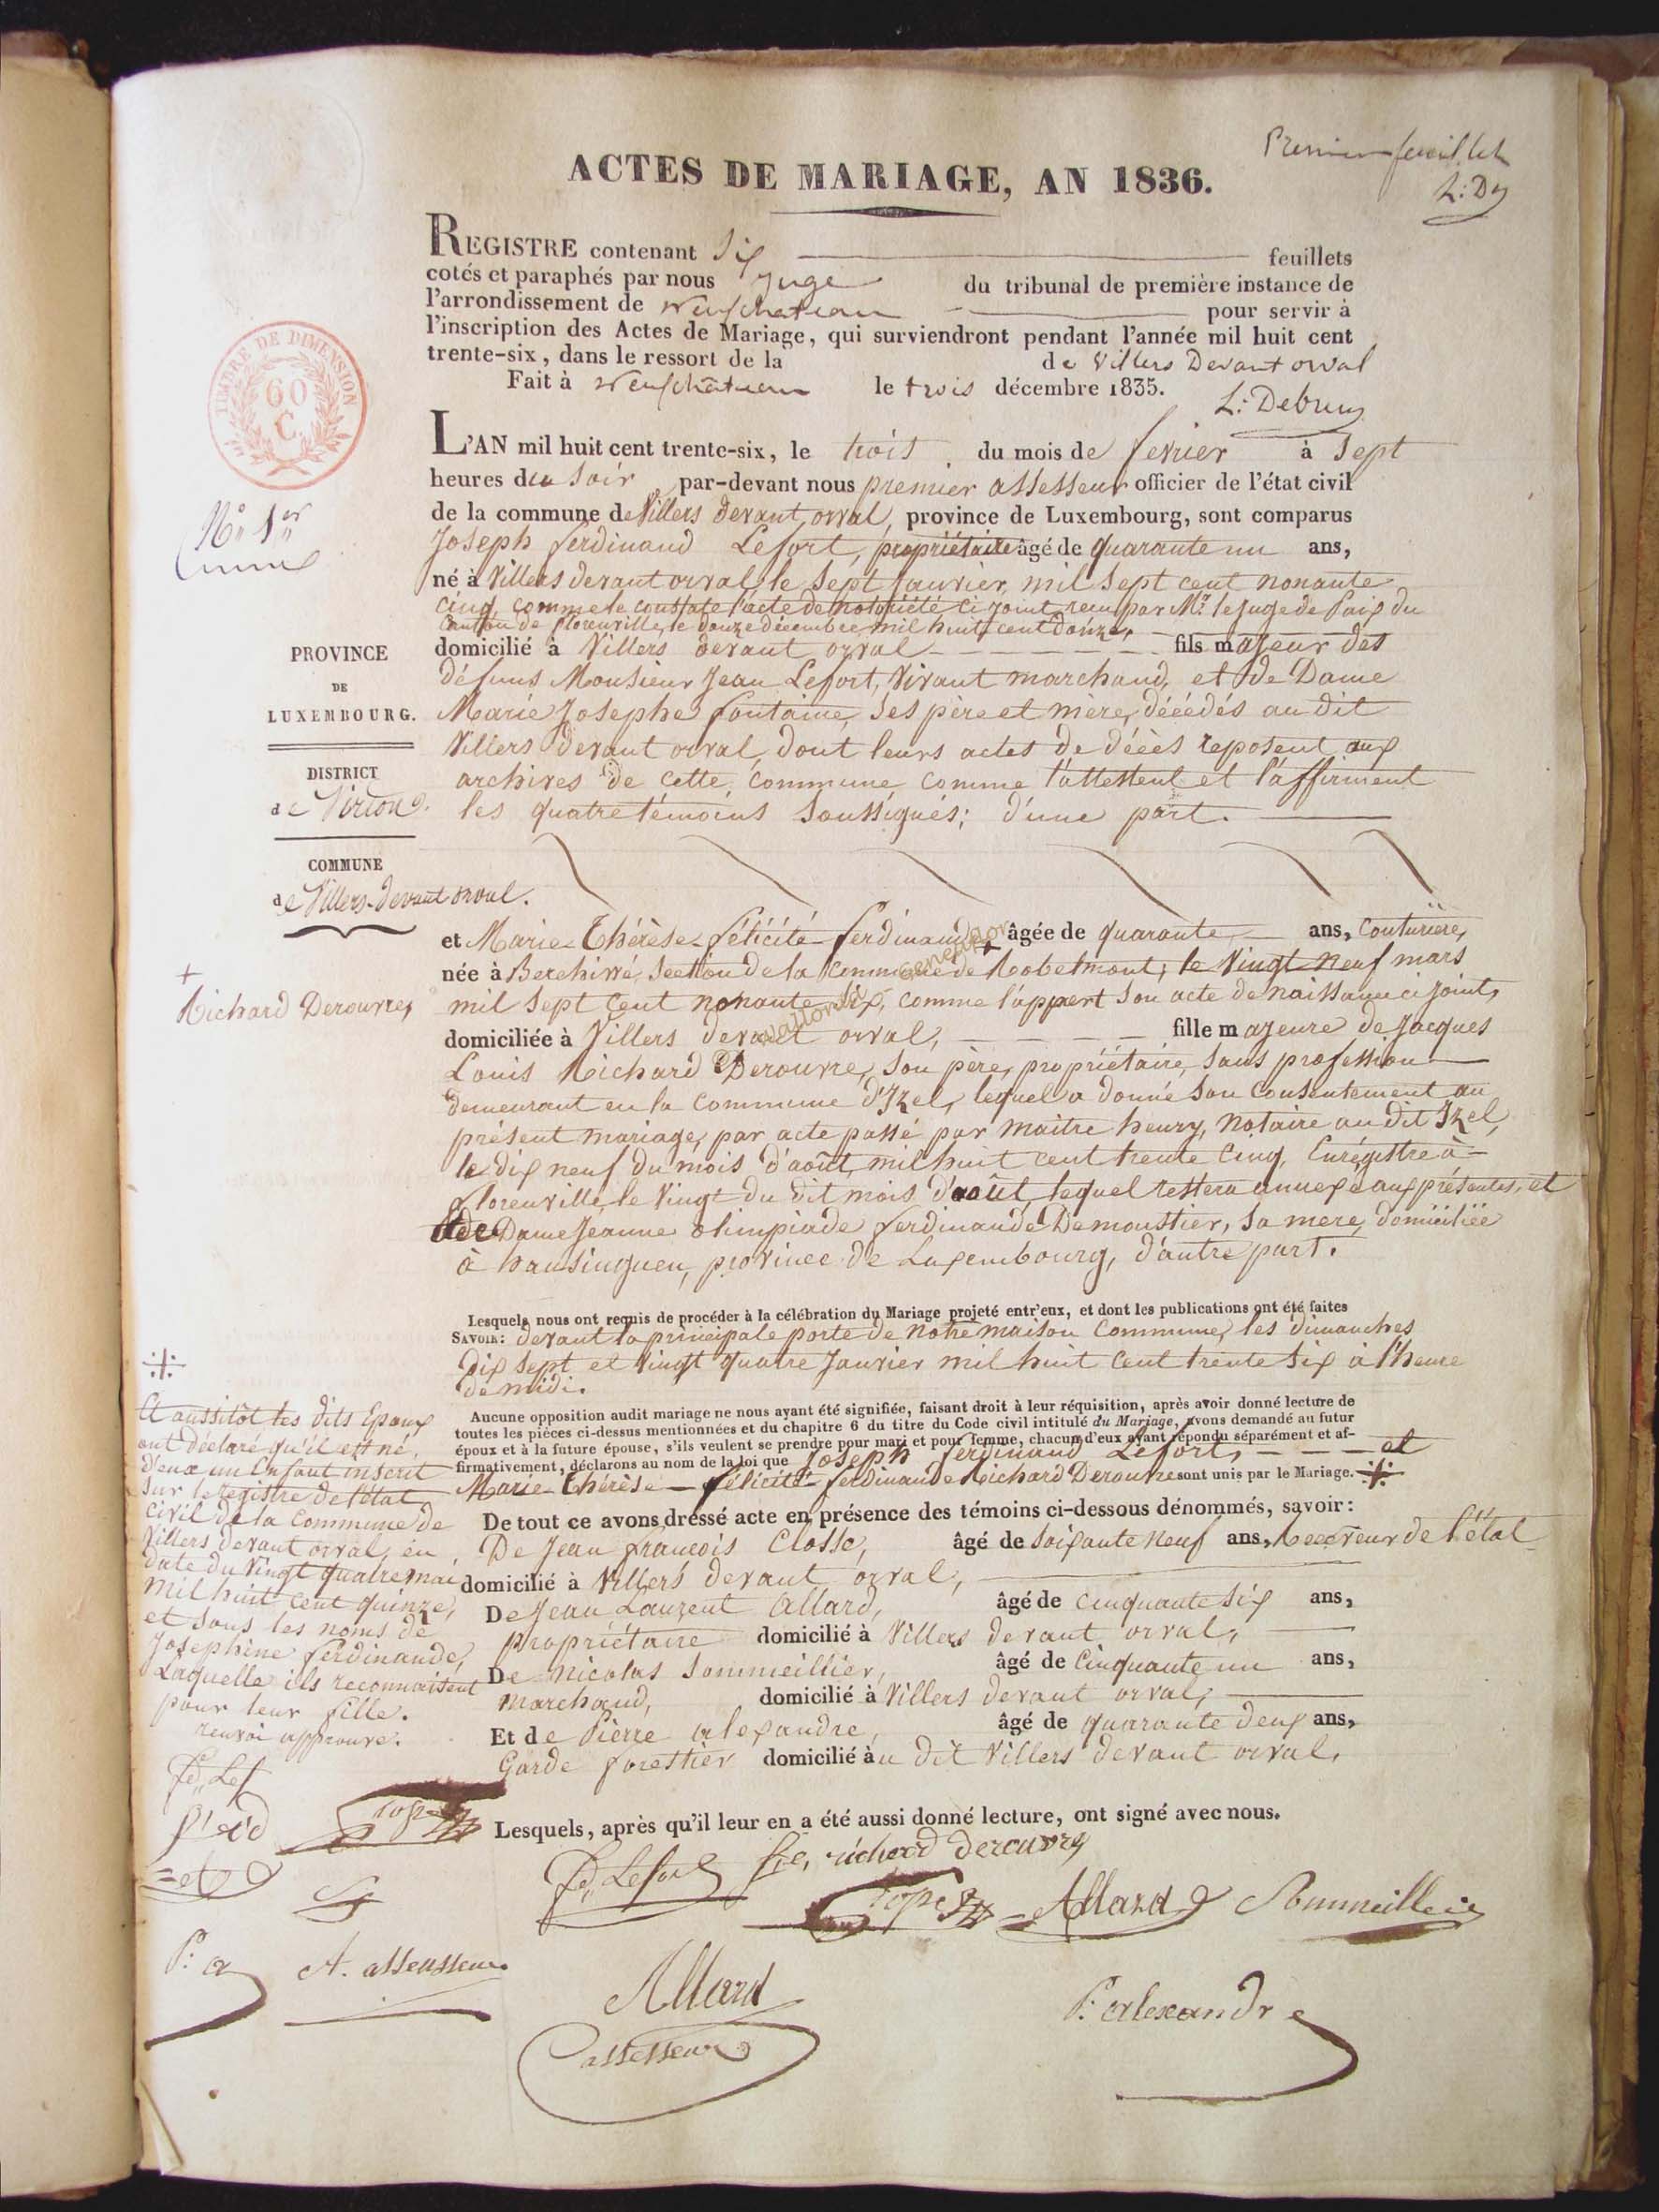 Premier feuillet
L: Dy
ACTES DE MARIAGE, AN 1836.
REGISTRE contenant Six feuillets
cotés et paraphés par nous Juge du tribunal de première instance de
l'arrondissement de Neufchateau pour servir à
l'inscription des Actes de Mariage, qui surviendront pendant l'année mil huit cent
trente-six, dans le ressort de la de Villers Devant orval
Fait à Neufchâteau le trois décembre 1835.
TIMBRE DE DIMENSION
60
C.
L'AN mil huit cent trente-six, le trois du mois de fevrier à Sept
heures du Soir, par-devant nous premier assesseur officier de l'état civil
de la commune de Villers devant orval, province de Luxembourg, sont comparus
N° 1er
Joseph ferdinand Lefort, propriétaire âgé de quarante un ans,
né à Villers devant orval, le Sept Janvier, mil Sept cent nonante
cinq, comme le constate l'acte de notoriété ci joint, recu par Mr. le Juge de Paix du
Canton de florenville, le douze décembre mil huit cent douze,
domicilié à Villers devant orval fils majeur des
défuns Monsieur Jean Lefort, Vivant marchand, et de Dame
Marie Josephe fontaine, Ses père et mère, décédés au dit
Villers devant orval, dont leurs actes de décès reposent aux
archives de cette commune comme l'attestent et l'affirment
les quatre témoins Soussignés; d'une part.
PROVINCE
DE
LUXEMBOURG.
DISTRICT
de Virton.
COMMUNE
de Villers-devant orval.
et Marie-Thérèse-félicité-ferdinande + âgée de quarante ans, Couturière,
née à Berchivré, Section de la Commune de Robelmont, le Vingt-Neuf mars
+
Richard Derouvre,
mil Sept Cent nonante Six, comme l'appert Son acte de naissance ci joint,
domiciliée à Villers devant orval, fille majeure de Jacques
Louis Richard Derouvre, Son père, propriétaire, Sans profession
demeurant en la Commune d'Izel, lequel a donné Son Consentement au
présent mariage, par acte passé par maitre henry, Notaire au dit Izel,
le dix neuf du mois d'août, mil huit cent trente Cinq, Enrégistre à
florenville, le Vingt du dit mois d'août, lequel restera annexé aux présentes, et
de Dame Jeanne olimpiade ferdinande Demoustier, Sa mere, domiciliée
à hausinguen, province de Luxembourg, d'autre part.
Lesquels nous ont requis de procéder à la célébration du Mariage projeté entr'eux, et dont les publications ont été faites
SAVOIR: devant la principale porte de Notre maison Commune, les dimanches
Dix Sept et Vingt quatre Janvier mil huit Cent trente Six à l'heure
de midi.
Aucune opposition audit mariage ne nous ayant été signifiée, faisant droit à leur réquisition, après avoir donné lecture de
toutes les pièces ci-dessus mentionnées et du chapitre 6 du titre du Code civil intitulé du Mariage, avons demandé au futur
époux et à la future épouse, s'ils veulent se prendre pour mari et pour femme, chacun d'eux ayant répondu séparément et af-
firmativement, déclarons au nom de la loi que Joseph ferdinand Lefort, et
Marie-Thérèse-félicité-ferdinande Richard Derouvre sont unis par le Mariage.
De tout ce avons dressé acte en présence des témoins ci-dessous dénommés, savoir:
De Jean francois Closse, âgé de Soixante Neuf ans, Receveur de l'état
domicilié à Villers devant orval,
De Jean Laurent Allard, âgé de Cinquante Six ans,
propriétaire domicilié à Villers devant orval,
De Nicolas Sommeillier, âgé de Cinquante un ans,
marchand, domicilié à Villers devant orval,
Et de Pierre alexandre, âgé de quarante deux ans,
Garde forestier domicilié au dit Villers devant orval.
Et aussitôt les dits Epoux
ont déclaré qu'il est né
d'eux un Enfant inscrit
Sur le registre de l'état
Civil de la Commune de
Villers devant orval, en
date du Vingt quatre mai
mil huit Cent quinze,
et Sous les noms de
Josephine ferdinande,
Laquelle ils reconnaissent
pour leur fille.
renvoi approuvé.
Lesquels, après qu'il leur en a été aussi donné lecture, ont signé avec nous.
fd,, Lef
fd,, Lefort
richard derouvre
Allard
Sommeillier
P: a
A. assesseur
Allard
assesseur
P: alexandre